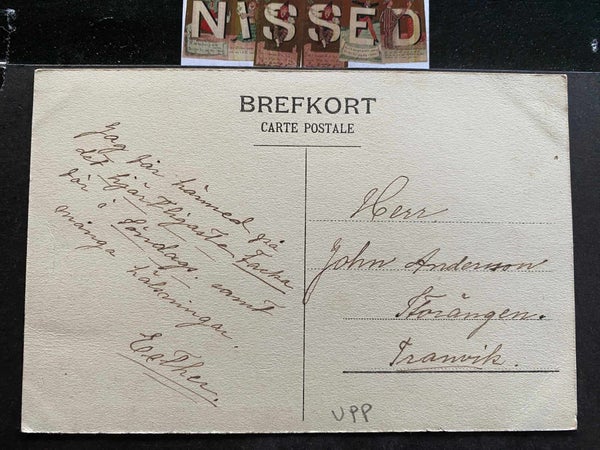 NISSED
BREFKORT
CARTE POSTALE
Jag får härmed på
det hjärtligaste Tacka
för i Söndags. samt
många hälsningar.
Esther.
Herr.
John Andersson
Storängen.
Tranvik.
UPP